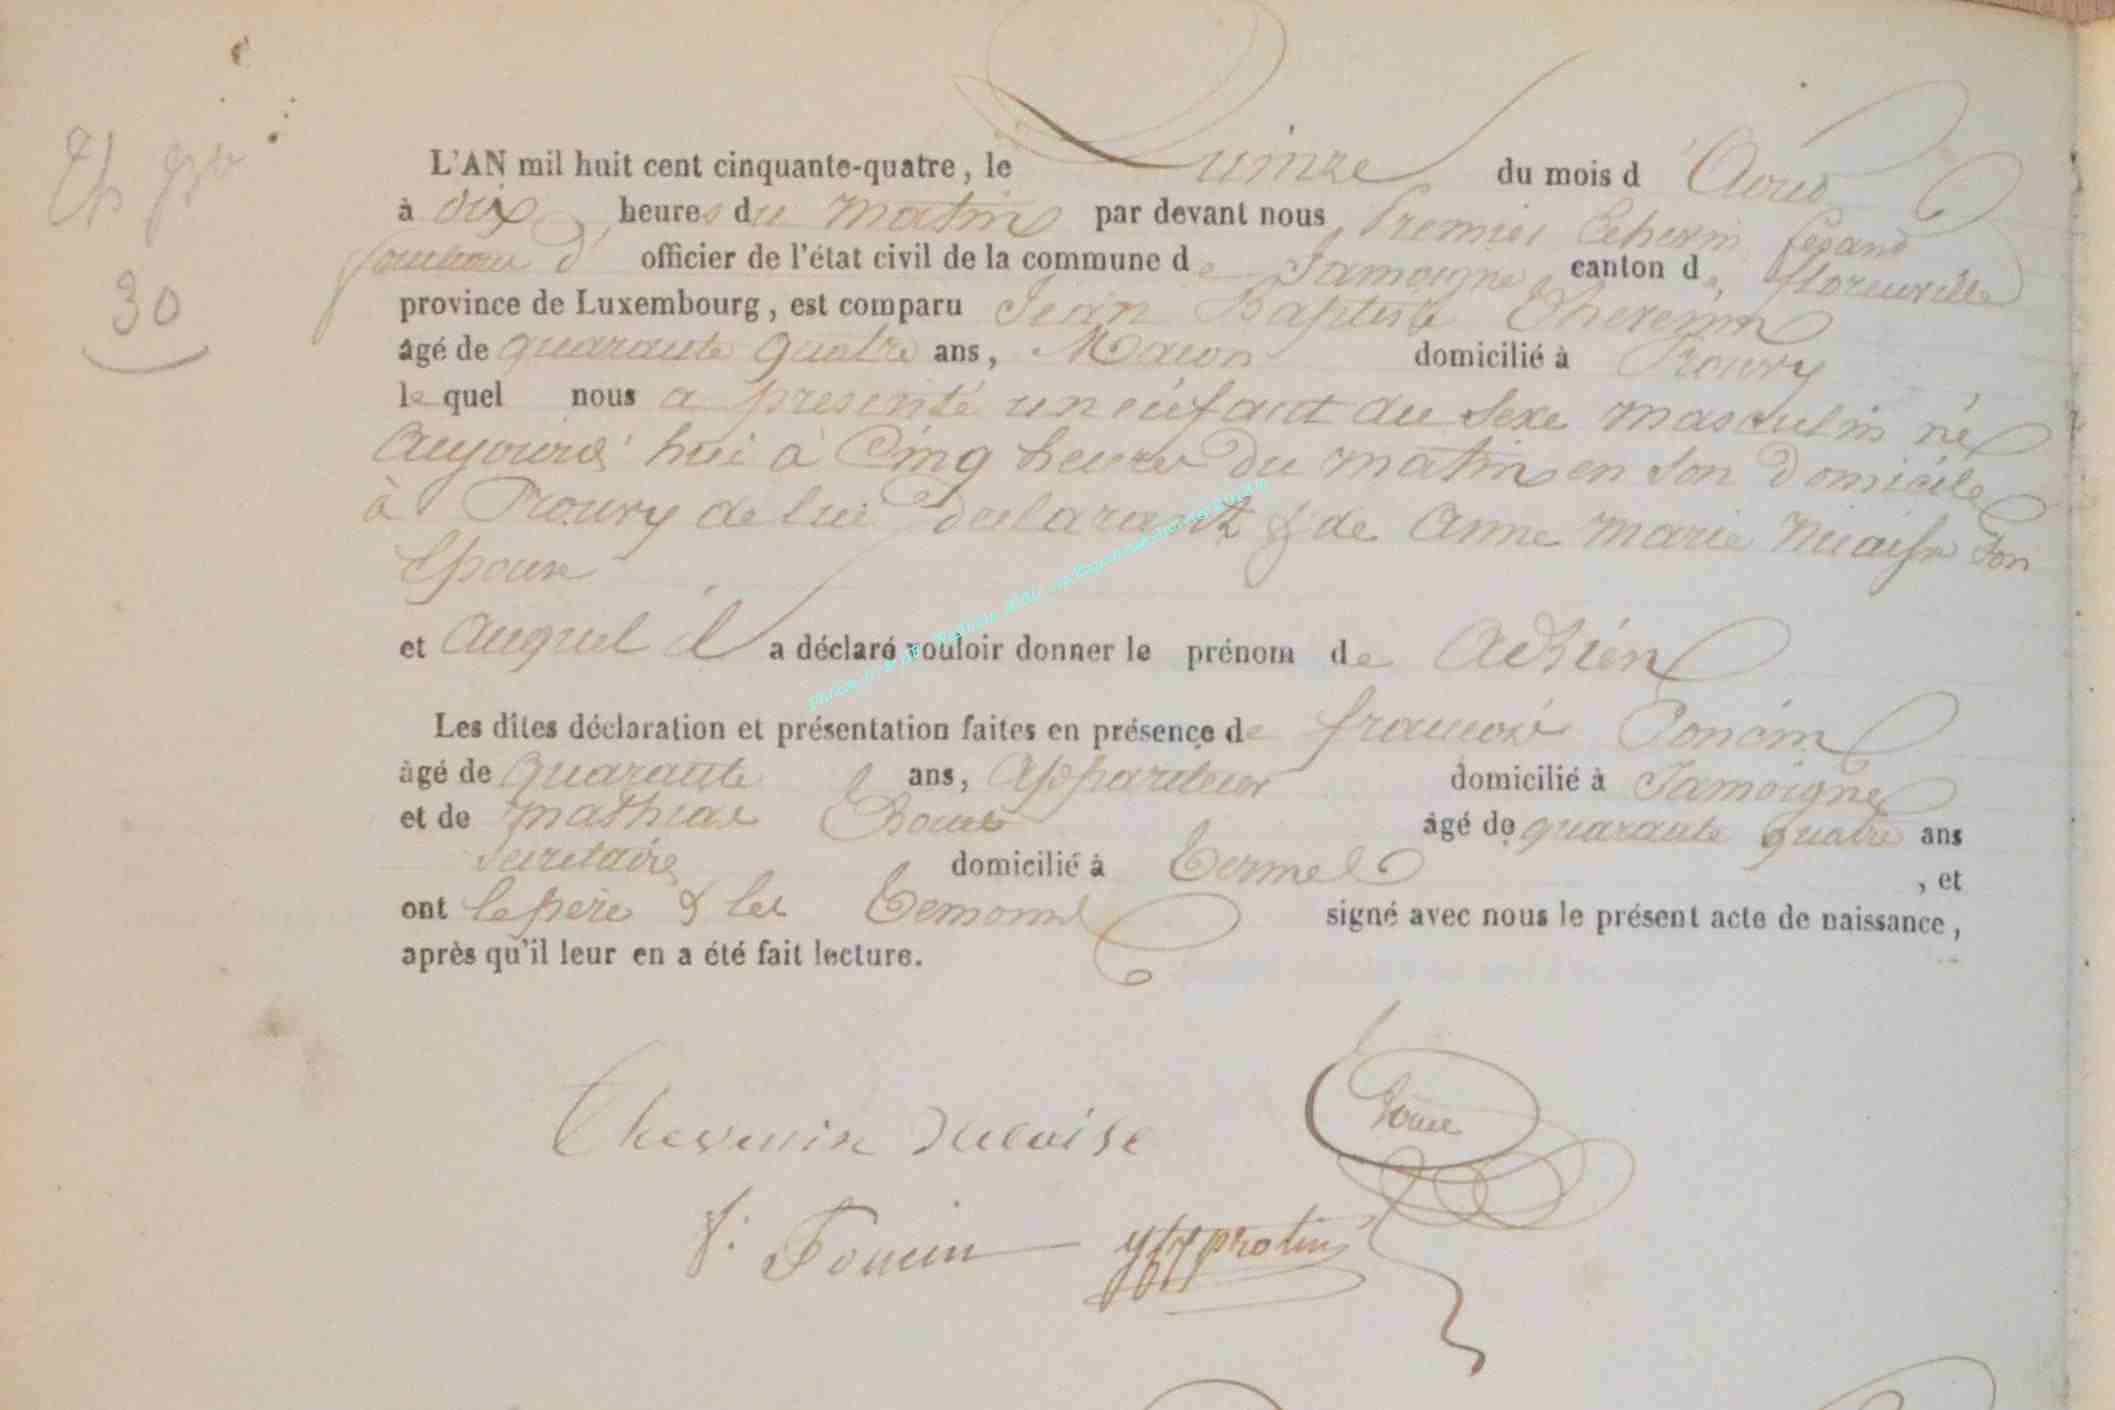 L'AN mil huit cent cinquante-quatre, le Quinze du mois d'Aout
à dix heures du matin par devant nous Premier Echevin fesant
fonction d' officier de l'état civil de la commune de Jamoigne canton de florenville
province de Luxembourg, est comparu Jean Baptiste Thevenin
âgé de quarante quatre ans, Macon domicilié à Prouvy
le quel nous a presenté un enfant du sexe masculin né
aujourd'hui à Cinq heures du matin en son domicile
à Prouvy de lui declarant & de Anne Marie Nicaise son
Epouse
et auquel il a déclaré vouloir donner le prénom de Adrien
Les dites déclaration et présentation faites en présence de francois Poncin
âgé de quarante ans, appariteur domicilié à Jamoigne
et de mathias âgé de quarante quatre ans
secretaire domicilié à Termes , et
ont le père & les Temoins signé avec nous le présent acte de naissance,
après qu'il leur en a été fait lecture.
30
Thevenin Nicaise
f: Poncin
protin